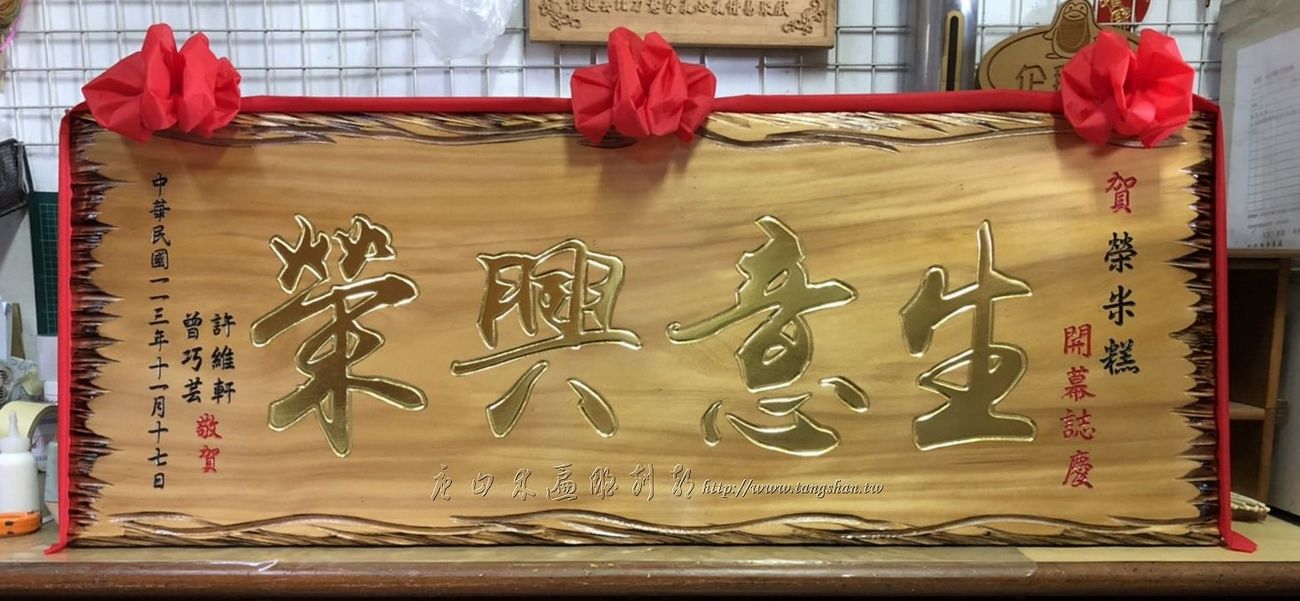 賀 榮米糕
開幕誌慶
生意興榮
許維軒
曾巧芸
敬賀
中華民國一一三年十一月十七日
http://www.tangshan.tw